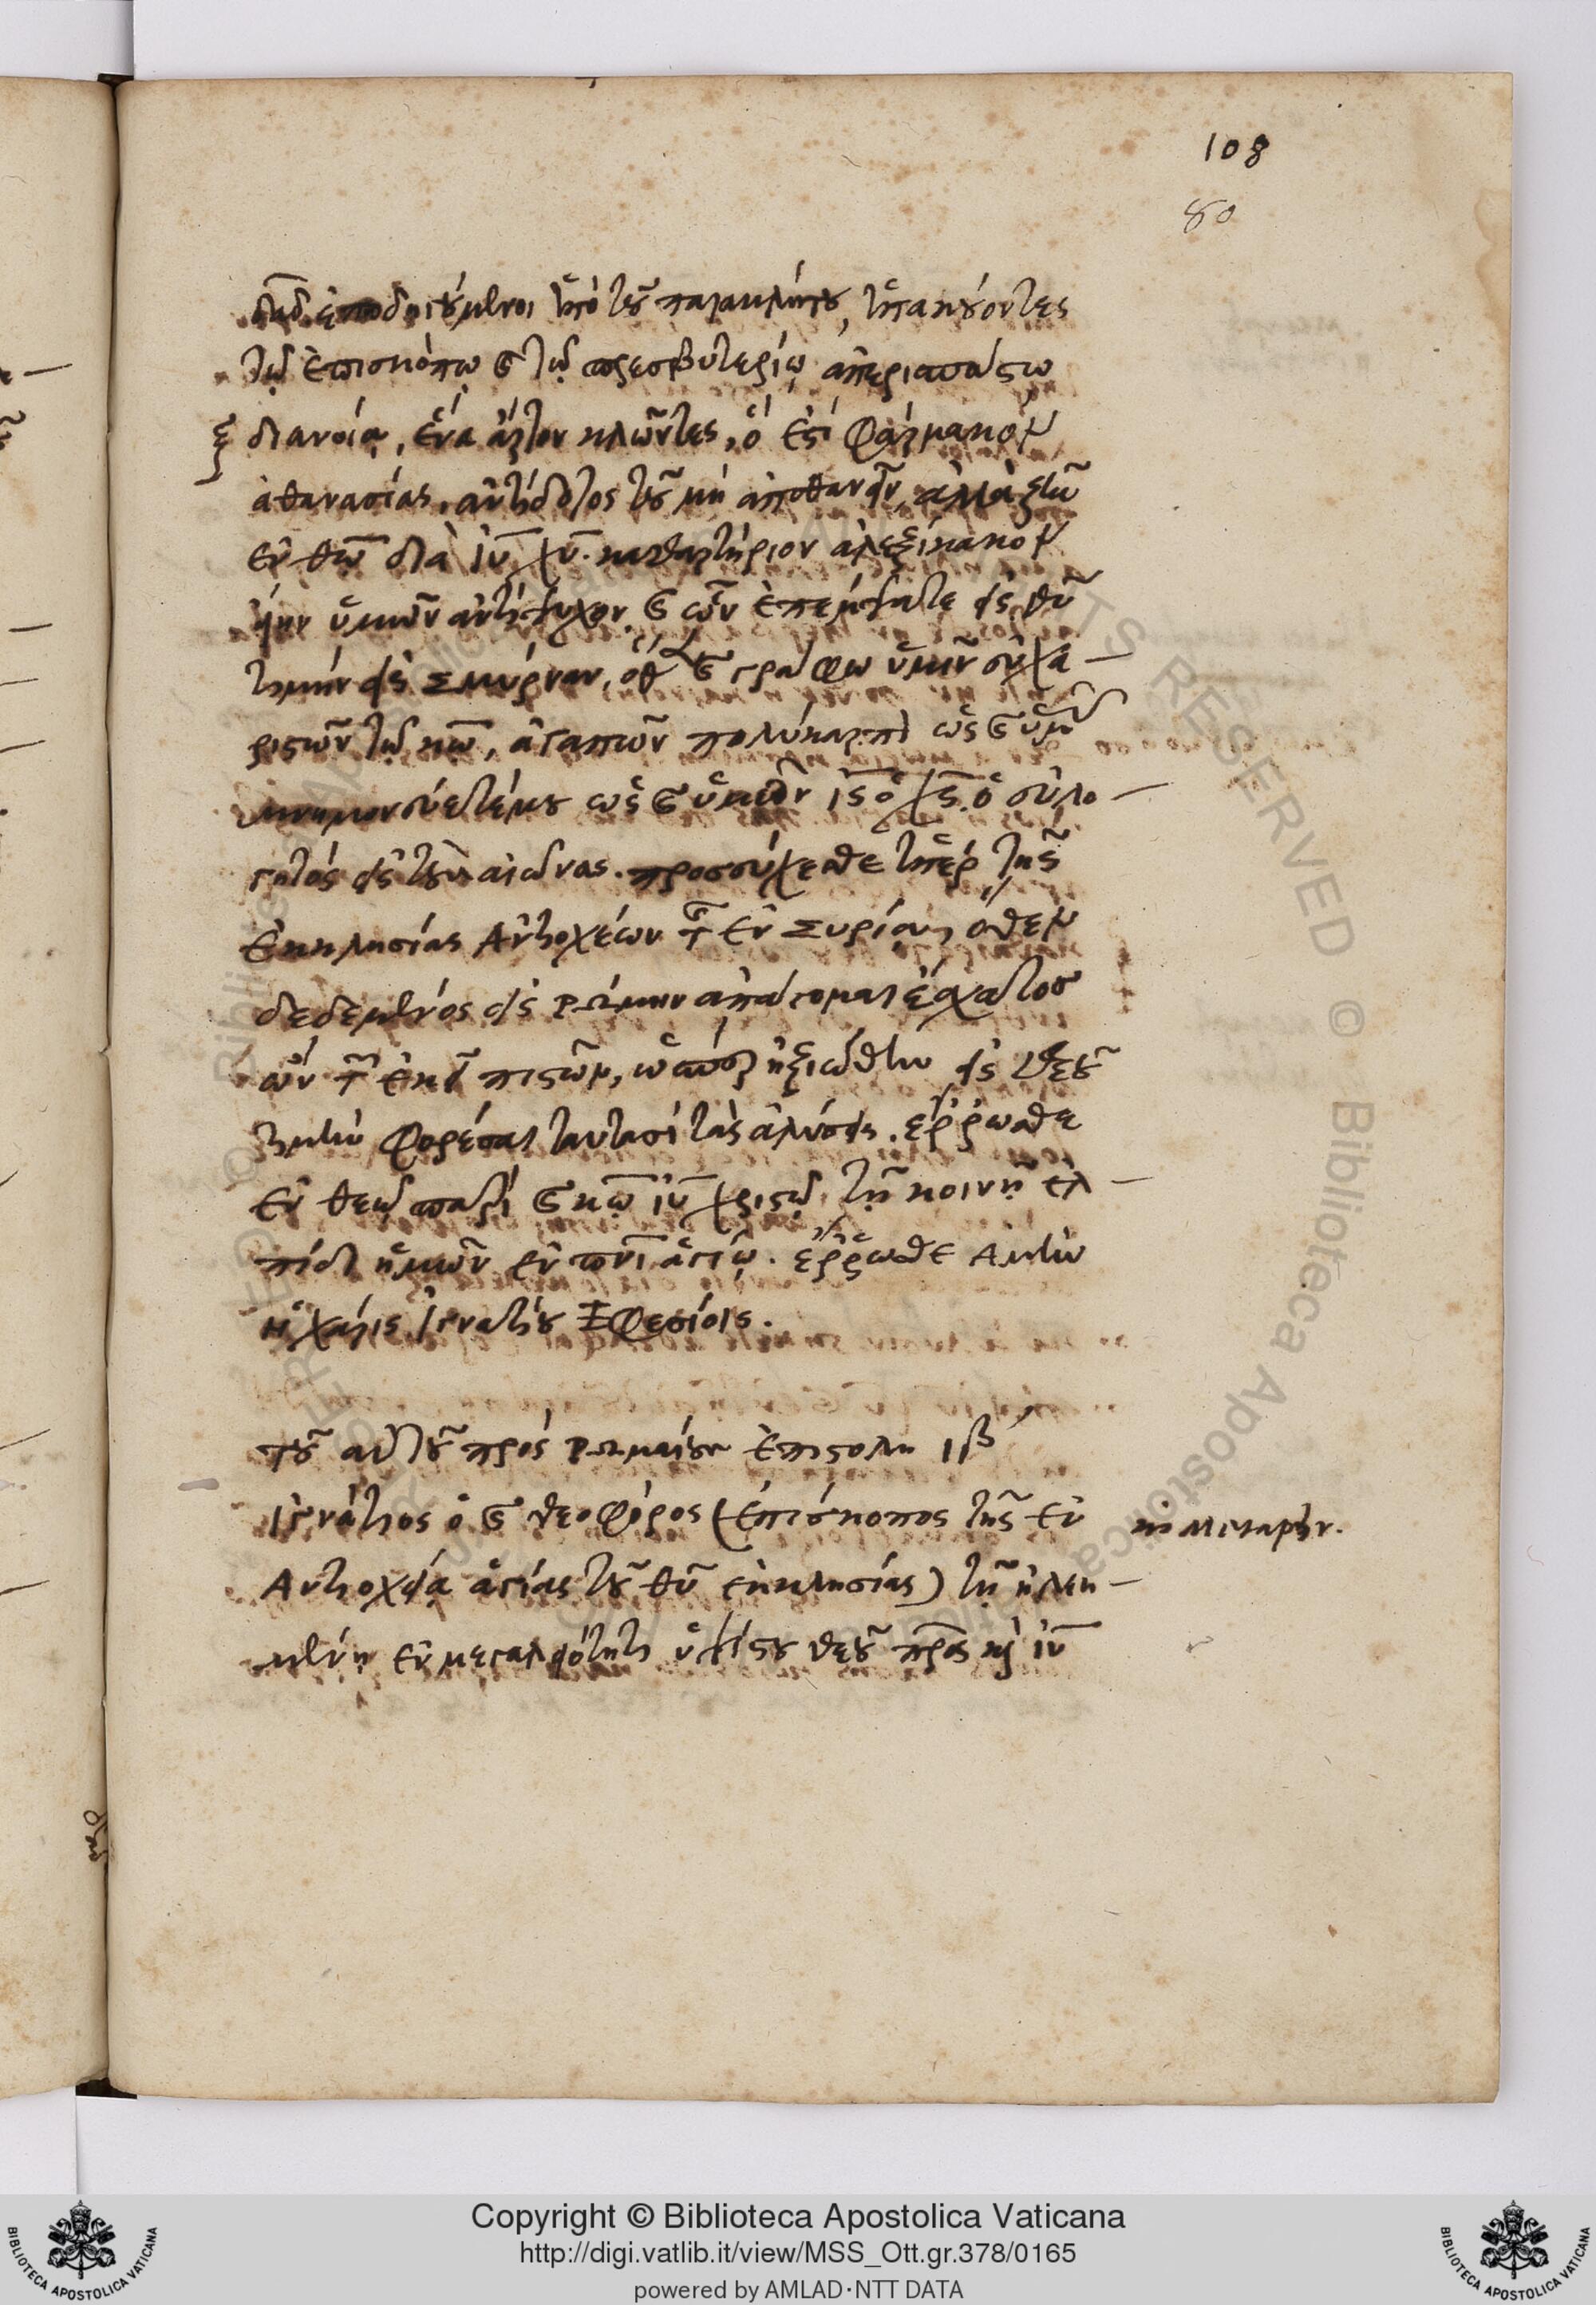 108
80
δ̅υ̅δ̅ ἐποδηγούμενοι ὑπὸ τοῦ παρακλήτου, ὑπακούοντες
τῷ ἐπισκόπῳ καὶ τῷ πρεσβυτερίῳ ἀπερισπάστῳ
διανοίᾳ, ἕνα ἄρτον κλῶντες, ὅ ἐστι φάρμακον
ἀθανασίας, ἀντίδοτος τοῦ μὴ ἀποθανεῖν, ἀλλὰ ζῆν
ἐν θ̅ω̅ διὰ ι̅υ̅ χ̅υ̅. καθαρτήριον ἀλεξίκακον
ὑμῶν ἀντίψυχον καὶ ὧν ἐπέμψατε εἰς θ̅υ̅
τιμὴν εἰς Σμύρναν, ὅθεν καὶ γράφω ὑμῖν εὐχα-
ριστῶν τῷ κ̅ω̅, ἀγαπῶν πολύκαρπον ὡς καὶ ὑμᾶς
μνημονεύετέ μου ὡς καὶ ὑμῶν ι̅ς̅ ὁ χ̅ς̅. ὁ εὐλο-
γητὸς εἰς τοὺς αἰῶνας. προσεύχεσθε ὑπὲρ τῆς
ἐκκλησίας Ἀντιοχέων τῆς ἐν Συρίᾳ, ὅθεν
δεδεμένος εἰς Ῥώμην ἀπάγομαι ἔσχατος
ὢν τῶν ἐκεῖ πιστῶν, ὥσπερ ἠξιώθην εἰς θεοῦ
τιμὴν φορέσαι ταυτασὶ τὰς ἁλύσεις. ἔῤῥωσθε
ἐν θεῷ πατρὶ καὶ κ̅ω̅ ι̅υ̅ χριστῷ, τῇ κοινῇ ἐλ-
πίδι ἡμῶν ἐν π̅ν̅ι̅ ἁγίῳ. ἔῤῥωσθε Ἀμὴν
ἡ χάρις. Ἰγνατίου Ἐφεσίοις.
τοῦ αὐτοῦ πρὸς Ῥωμαίους ἐπιστολὴ ιβʹ
Ἰγνάτιος ὁ καὶ θεοφόρος (ἐπίσκοπος τῆς ἐν
Ἀντιοχείᾳ ἁγίας τοῦ θ̅υ̅ ἐκκλησίας) τῇ ἠλεη-
μένῃ ἐν μεγαλειότητι ὑψίστου θεοῦ π̅ρ̅ο̅ς̅ καὶ ι̅υ̅
Metaphr.
Copyright © Biblioteca Apostolica Vaticana
http://digi.vatlib.it/view/MSS_Ott.gr.378/0165
powered by AMLAD·NTT DATA
BIBLIOTECA APOSTOLICA VATICANA
BIBLIOTECA APOSTOLICA VATICANA